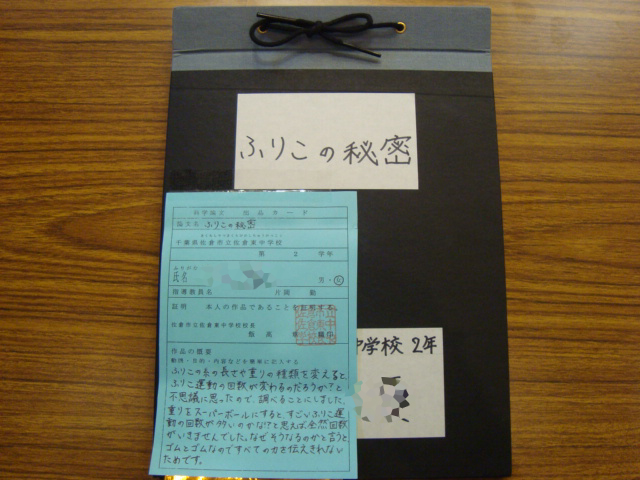 ふりこの秘密
科学論文 出品カード
論文名 ふりこの秘密
千葉県佐倉市立佐倉東中学校
第 2 学年
氏名
男・女
指導教員名 片岡 勤
証明 本人の作品であることを証明する
佐倉市立佐倉東中学校校長
作品の概要
動機・目的・内容などを簡単に記入する
ふりこの糸の長さや重りの種類を変えると、
ふりこ運動の回数が変わるのだろうか?と
不思議に思ったので、調べることにしました。
重りをスーパーボールにすると、すごいふりこ運
動の回数が多いのかな!?と思えば全然回数
がいきませんでした。なぜそうなるのかと言うと
ゴムとゴムなのですべての力を伝えきれない
ためです。
中学校 2年